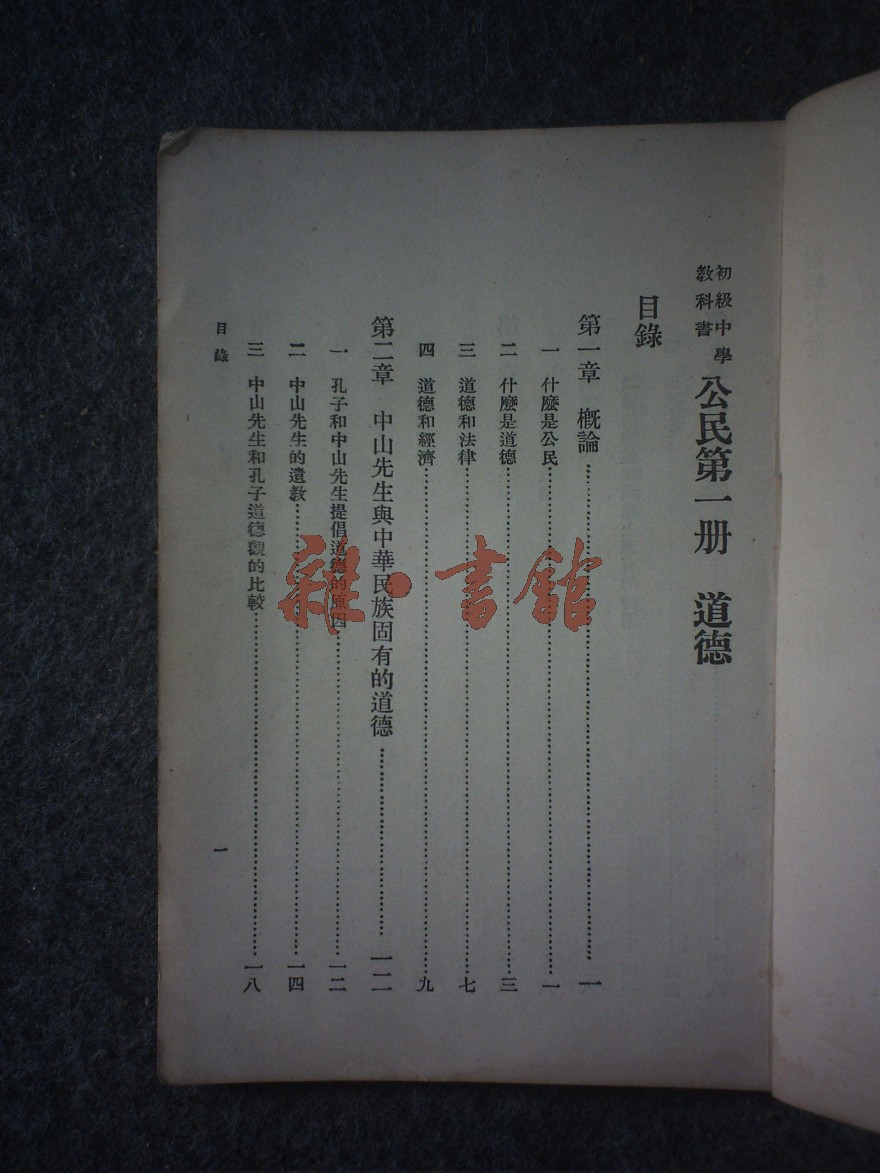 初級中學
教科書
公民第一册　道德
目錄
第一章　概論……一
一　什麼是公民……一
二　什麼是道德……三
三　道德和法律……七
四　道德和經濟……九
第二章　中山先生與中華民族固有的道德……一二
一　孔子和中山先生提倡道德的原因……一二
二　中山先生的遺教……一四
三　中山先生和孔子道德觀的比較……一八
目錄
一
雜·書館